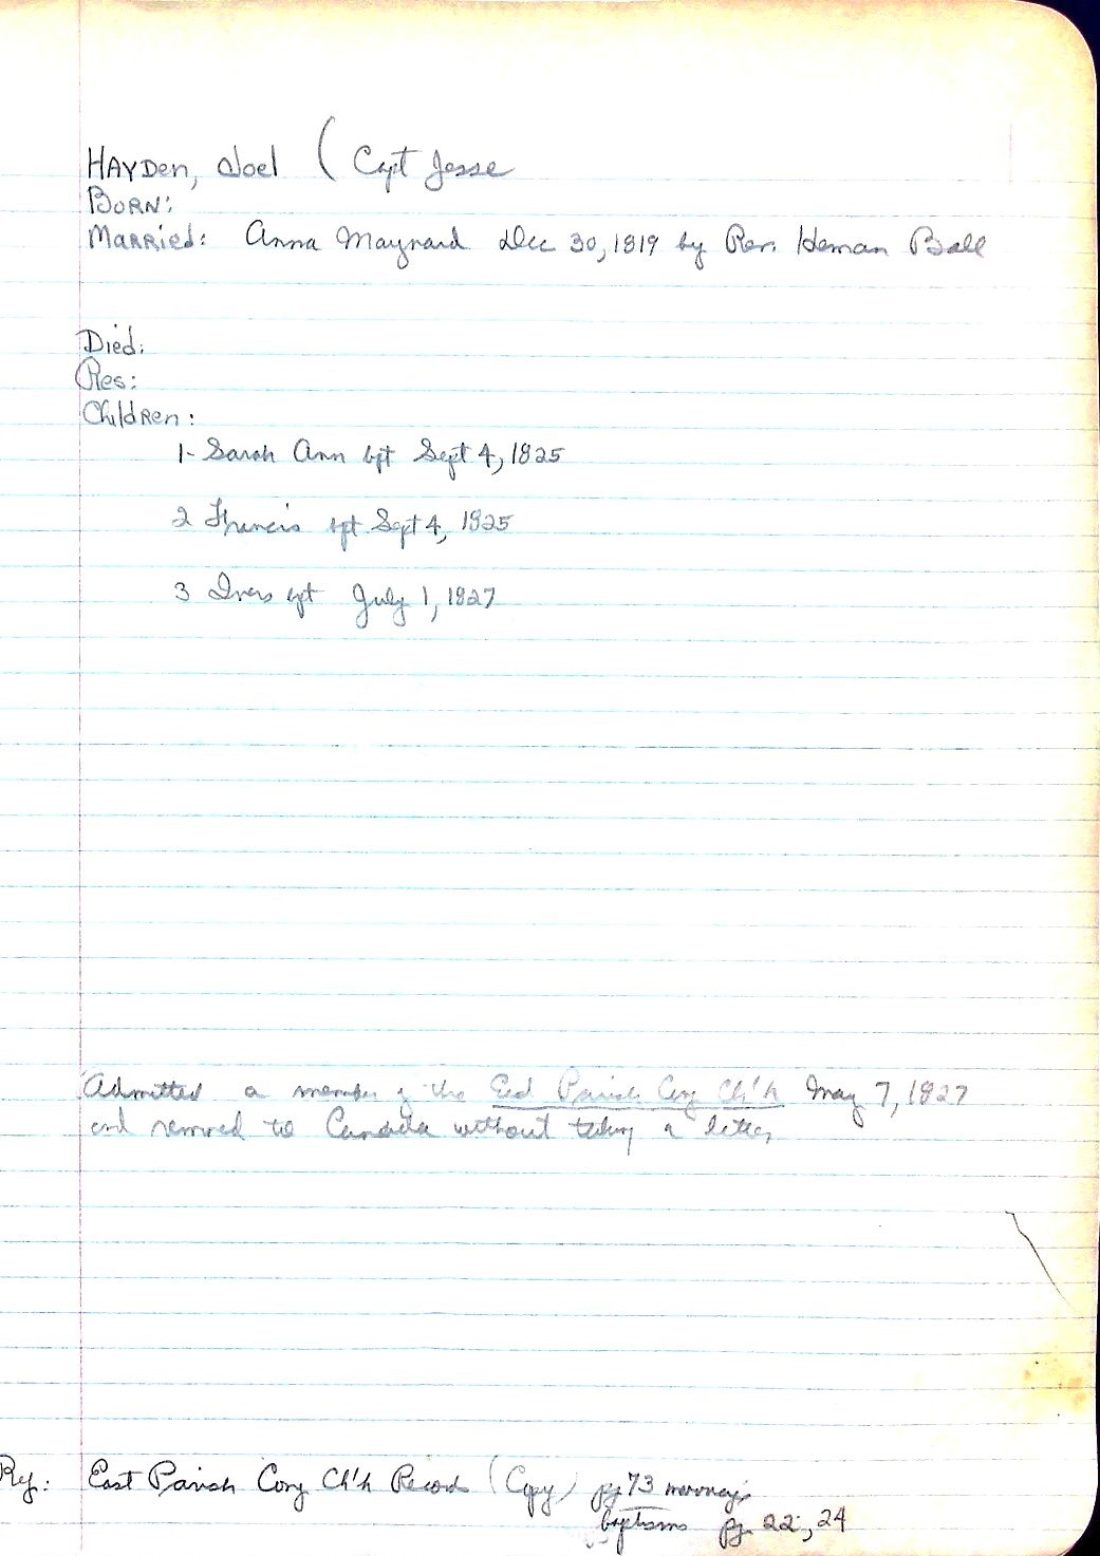 HAYDen, Joel ( Capt Jesse
BORN:
MARRied: Anna Maynard Dec 30, 1819 by Rev. Heman Ball
Died:
Res:
ChildRen:
1- Sarah Ann bpt Sept 4, 1825
2 Francis bpt Sept 4, 1825
3 Ivers bpt July 1, 1827
Admitted a member of the East Parish Cong Ch'h May 7, 1827
and removed to Canada without taking a letter
Ref: East Parish Cong Ch'h Records (Copy) pg 73 marriages
baptisms pg. 22, 24